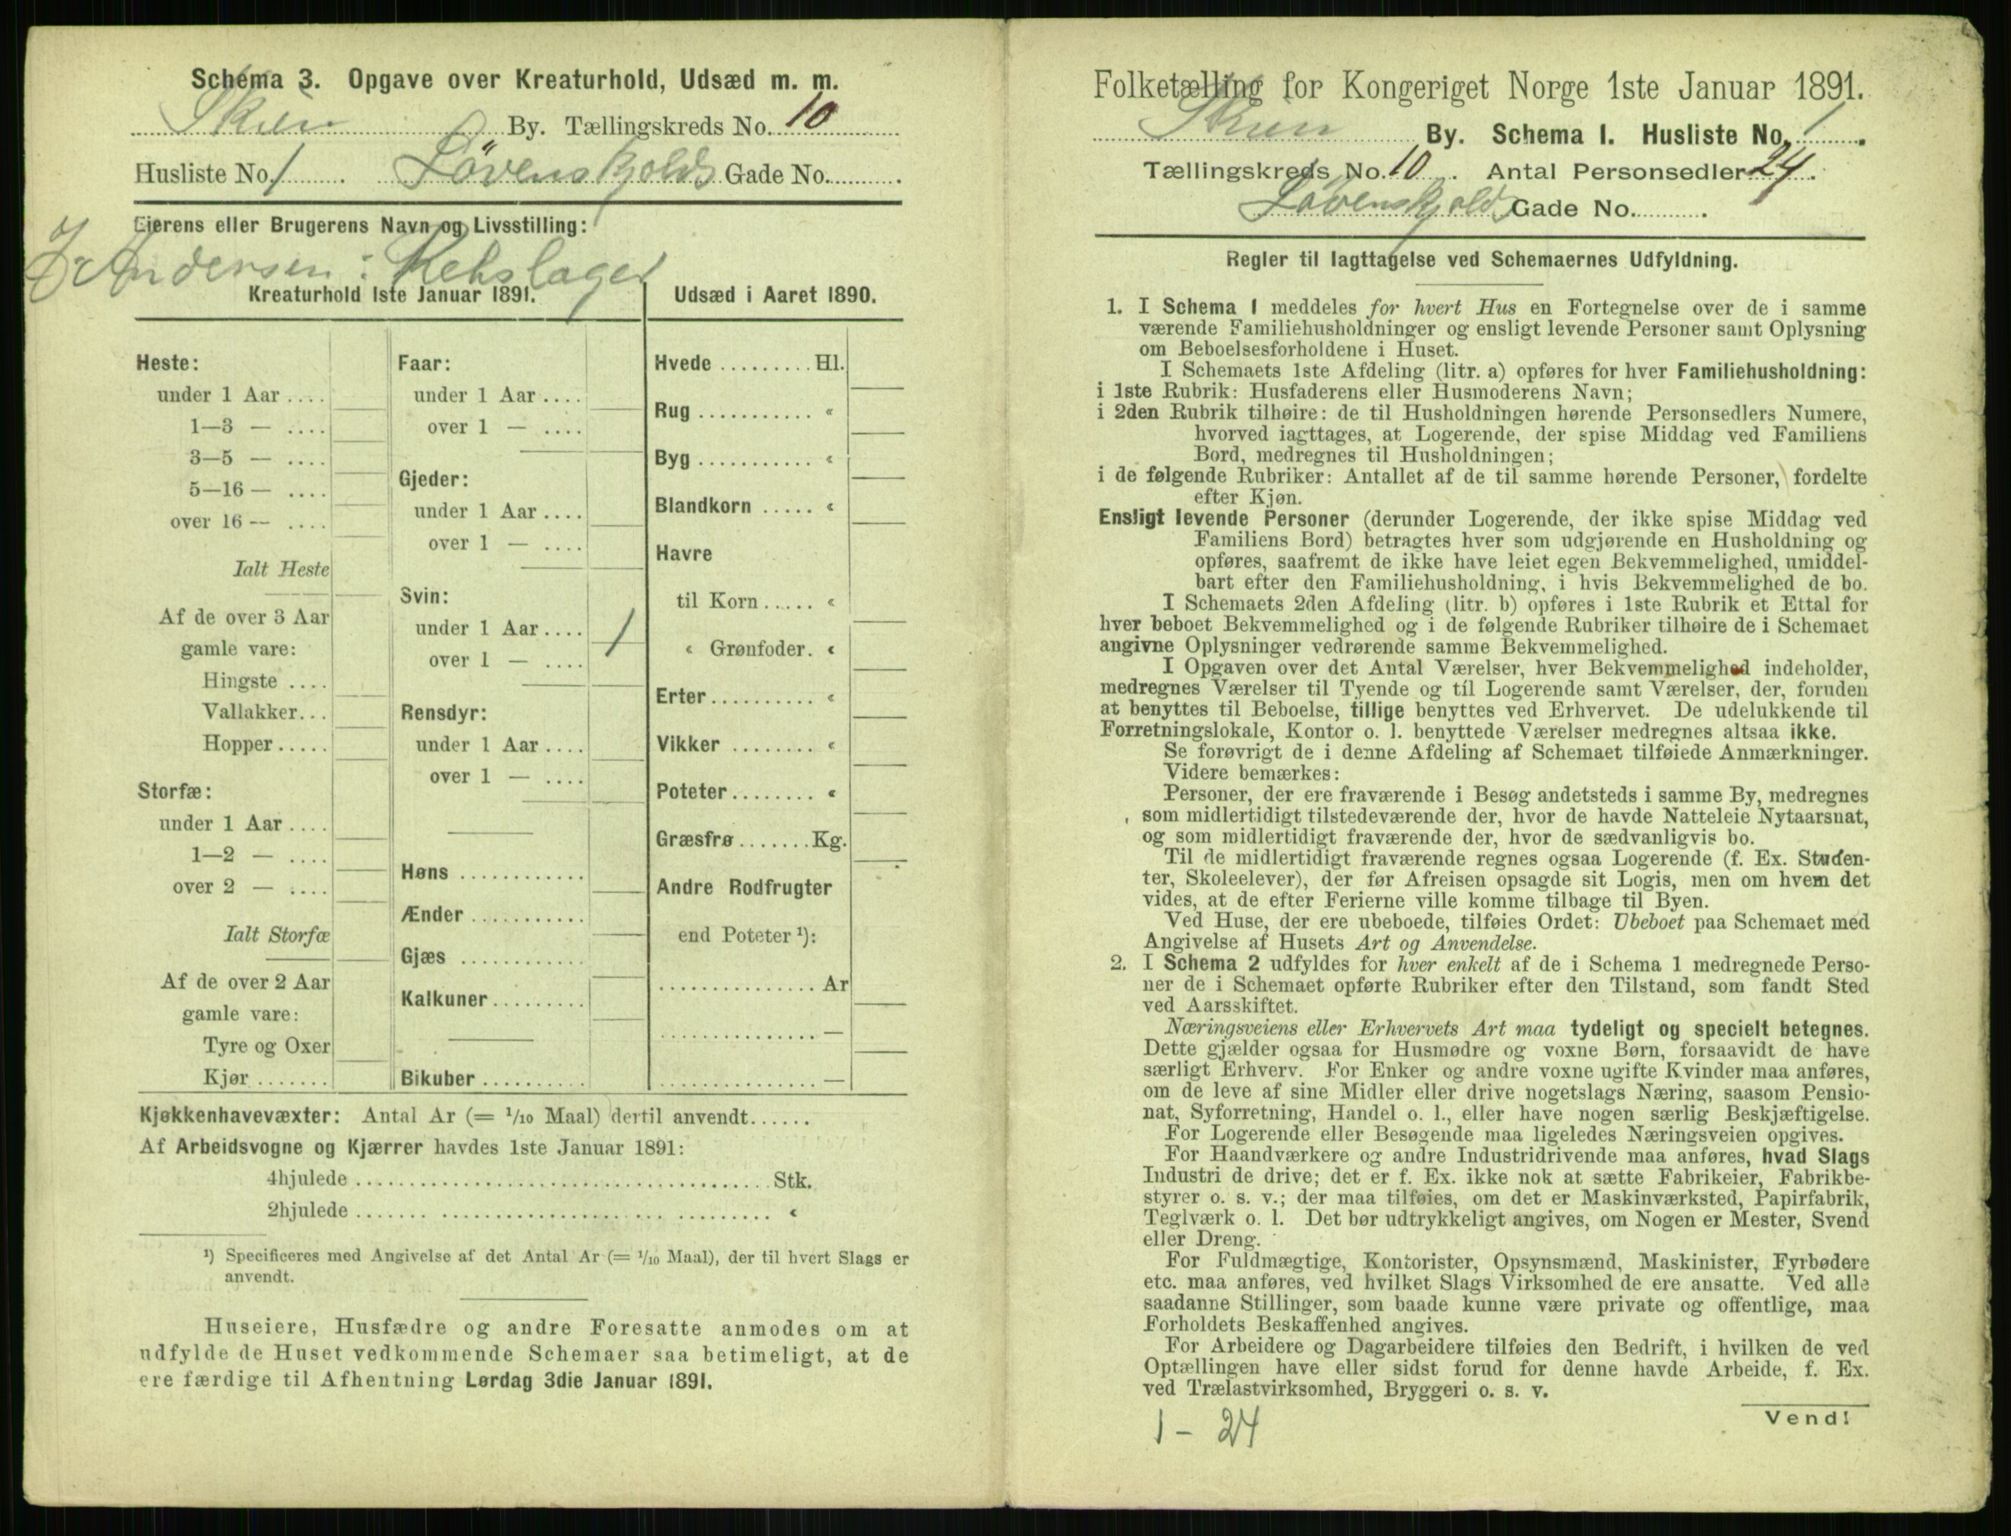 Schema 3. Opgave over Kreaturhold, Udsæd m. m.
Skien By. Tællingskreds No. 10
Husliste No. 1 Løvenskjolds Gade No.
Eierens eller Brugerens Navn og Livsstilling:
Andersen: Rebslager
Kreaturhold 1ste Januar 1891.
Heste:
under 1 Aar ....
1—3 — ....
3—5 — ....
5—16 — ....
over 16 — ....
Ialt Heste
Af de over 3 Aar
gamle vare:
Hingste ....
Vallakker...
Hopper.....
Storfæ:
under 1 Aar ....
1—2 — ....
over 2 — ....
Ialt Storfæ
Af de over 2 Aar
gamle vare:
Tyre og Oxer
Kjør.......
Faar:
under 1 Aar ....
over 1 — ....
Gjeder:
under 1 Aar ....
over 1 — ....
Svin:
under 1 Aar.... 1
over 1 — ....
Rensdyr:
under 1 Aar ....
over 1 — ....
Høns ............
Ænder ...........
Gjæs ............
Kalkuner.........
Bikuber ..........
Udsæd i Aaret 1890.
Hvede ......... Hl.
Rug ........... «
Byg ........... «
Blandkorn ..... «
Havre
til Korn ..... «
« Grønfoder. «
Erter.......... «
Vikker ........ «
Poteter........ «
Græsfrø ....... Kg.
Andre Rodfrugter
end Poteter ¹):
............... Ar
............... —
............... —
Kjøkkenhavevæxter: Antal Ar (= 1/10 Maal) dertil anvendt......
Af Arbeidsvogne og Kjærrer havdes 1ste Januar 1891:
4hjulede ....................................... Stk.
2hjulede ....................................... «
¹) Specificeres med Angivelse af det Antal Ar (= 1/10 Maal), der til hvert Slags er
anvendt.
Huseiere, Husfædre og andre Foresatte anmodes om at
udfylde de Huset vedkommende Schemaer saa betimeligt, at de
ere færdige til Afhentning Lørdag 3die Januar 1891.
Folketælling for Kongeriget Norge 1ste Januar 1891.
Skien By. Schema I. Husliste No. 1
Tællingskreds No. 10. Antal Personsedler 24.
Løvenskjolds Gade No.
Regler til Iagttagelse ved Schemaernes Udfyldning.
1. I Schema I meddeles for hvert Hus en Fortegnelse over de i samme
værende Familiehusholdninger og ensligt levende Personer samt Oplysning
om Beboelsesforholdene i Huset.
I Schemaets 1ste Afdeling (litr. a) opføres for hver Familiehusholdning:
i 1ste Rubrik: Husfaderens eller Husmoderens Navn;
i 2den Rubrik tilhøire: de til Husholdningen hørende Personsedlers Numere,
hvorved iagttages, at Logerende, der spise Middag ved Familiens
Bord, medregnes til Husholdningen;
i de følgende Rubriker: Antallet af de til samme hørende Personer, fordelte
efter Kjøn.
Ensligt levende Personer (derunder Logerende, der ikke spise Middag ved
Familiens Bord) betragtes hver som udgjørende en Husholdning og
opføres, saafremt de ikke have leiet egen Bekvemmelighed, umiddel-
bart efter den Familiehusholdning, i hvis Bekvemmelighed de bo.
I Schemaets 2den Afdeling (litr. b) opføres i 1ste Rubrik et Ettal for
hver beboet Bekvemmelighed og i de følgende Rubriker tilhøire de i Schemaet
angivne Oplysninger vedrørende samme Bekvemmelighed.
I Opgaven over det Antal Værelser, hver Bekvemmelighed indeholder,
medregnes Værelser til Tyende og til Logerende samt Værelser, der, foruden
at benyttes til Beboelse, tillige benyttes ved Erhvervet. De udelukkende til
Forretningslokale, Kontor o. l. benyttede Værelser medregnes altsaa ikke.
Se forøvrigt de i denne Afdeling af Schemaet tilføiede Anmærkninger.
Videre bemærkes:
Personer, der ere fraværende i Besøg andetsteds i samme By, medregnes
som midlertidigt tilstedeværende der, hvor de havde Natteleie Nytaarsnat,
og som midlertidigt fraværende der, hvor de sædvanligvis bo.
Til de midlertidigt fraværende regnes ogsaa Logerende (f. Ex. Studen-
ter, Skoleelever), der før Afreisen opsagde sit Logis, men om hvem det
vides, at de efter Ferierne ville komme tilbage til Byen.
Ved Huse, der ere ubeboede, tilføies Ordet: Ubeboet paa Schemaet med
Angivelse af Husets Art og Anvendelse.
2. I Schema 2 udfyldes for hver enkelt af de i Schema 1 medregnede Perso-
ner de i Schemaet opførte Rubriker efter den Tilstand, som fandt Sted
ved Aarsskiftet.
Næringsveiens eller Erhvervets Art maa tydeligt og specielt betegnes.
Dette gjælder ogsaa for Husmødre og voxne Børn, forsaavidt de have
særligt Erhverv. For Enker og andre voxne ugifte Kvinder maa anføres,
om de leve af sine Midler eller drive nogetslags Næring, saasom Pensio-
nat, Syforretning, Handel o. l., eller have nogen særlig Beskjæftigelse.
For Logerende eller Besøgende maa ligeledes Næringsveien opgives.
For Haandværkere og andre Industridrivende maa anføres, hvad Slags
Industri de drive; det er f. Ex. ikke nok at sætte Fabrikeier, Fabrikbe-
styrer o. s. v.; der maa tilføies, om det er Maskinværksted, Papirfabrik,
Teglværk o. l. Det bør udtrykkeligt angives, om Nogen er Mester, Svend
eller Dreng.
For Fuldmægtige, Kontorister, Opsynsmænd, Maskinister, Fyrbødere
etc. maa anføres, ved hvilket Slags Virksomhed de ere ansatte. Ved alle
saadanne Stillinger, som baade kunne være private og offentlige, maa
Forholdets Beskaffenhed angives.
For Arbeidere og Dagarbeidere tilføies den Bedrift, i hvilken de ved
Optællingen have eller sidst forud for denne havde Arbeide, f. Ex.
ved Trælastvirksomhed, Bryggeri o. s. v.
Vend!
1 - 24